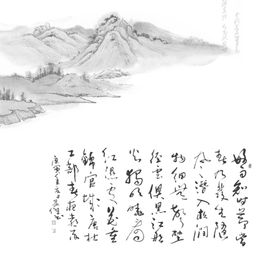 好雨知時節當
春乃發生隨
風潛入夜潤
物細無聲野
徑雲俱黑江船
火獨明曉看
紅濕處花重
錦官城唐杜
工部春夜喜雨
庚寅